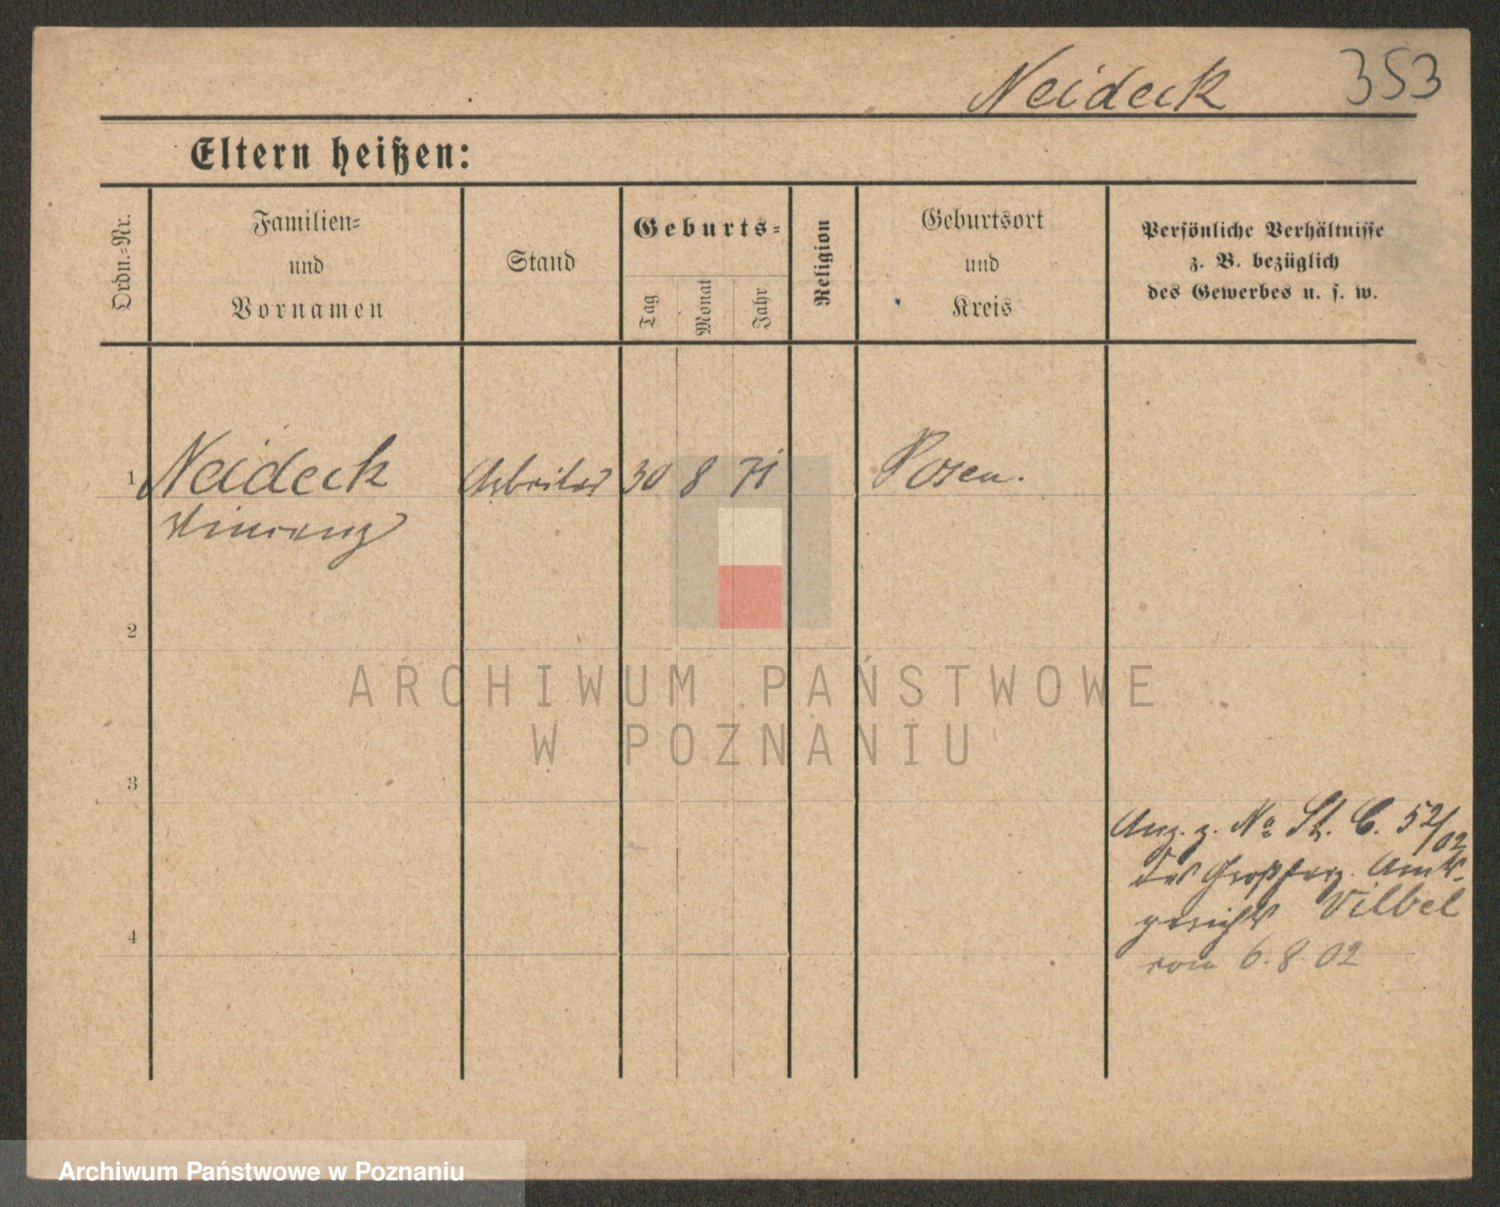 Neideck 353
Eltern heißen:
Ordn.-Nr.
Familien-
und
Vornamen
Stand
Geburts-
Tag
Monat
Jahr
Religion
Geburtsort
und
Kreis
Persönliche Verhältnisse
z. B. bezüglich
des Gewerbes u. s. w.
1 Neideck Arbeiter 30 8 71 Posen.
Vincenz
2
3
4
Anz. z. No St. C. 52/02
des Großherz. Amts-
gerichts Vilbel
vom 6.8.02
ARCHIWUM PAŃSTWOWE
W POZNANIU
Archiwum Państwowe w Poznaniu